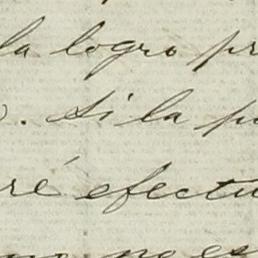 la logro pr
. Si la p
ré efectu
no es